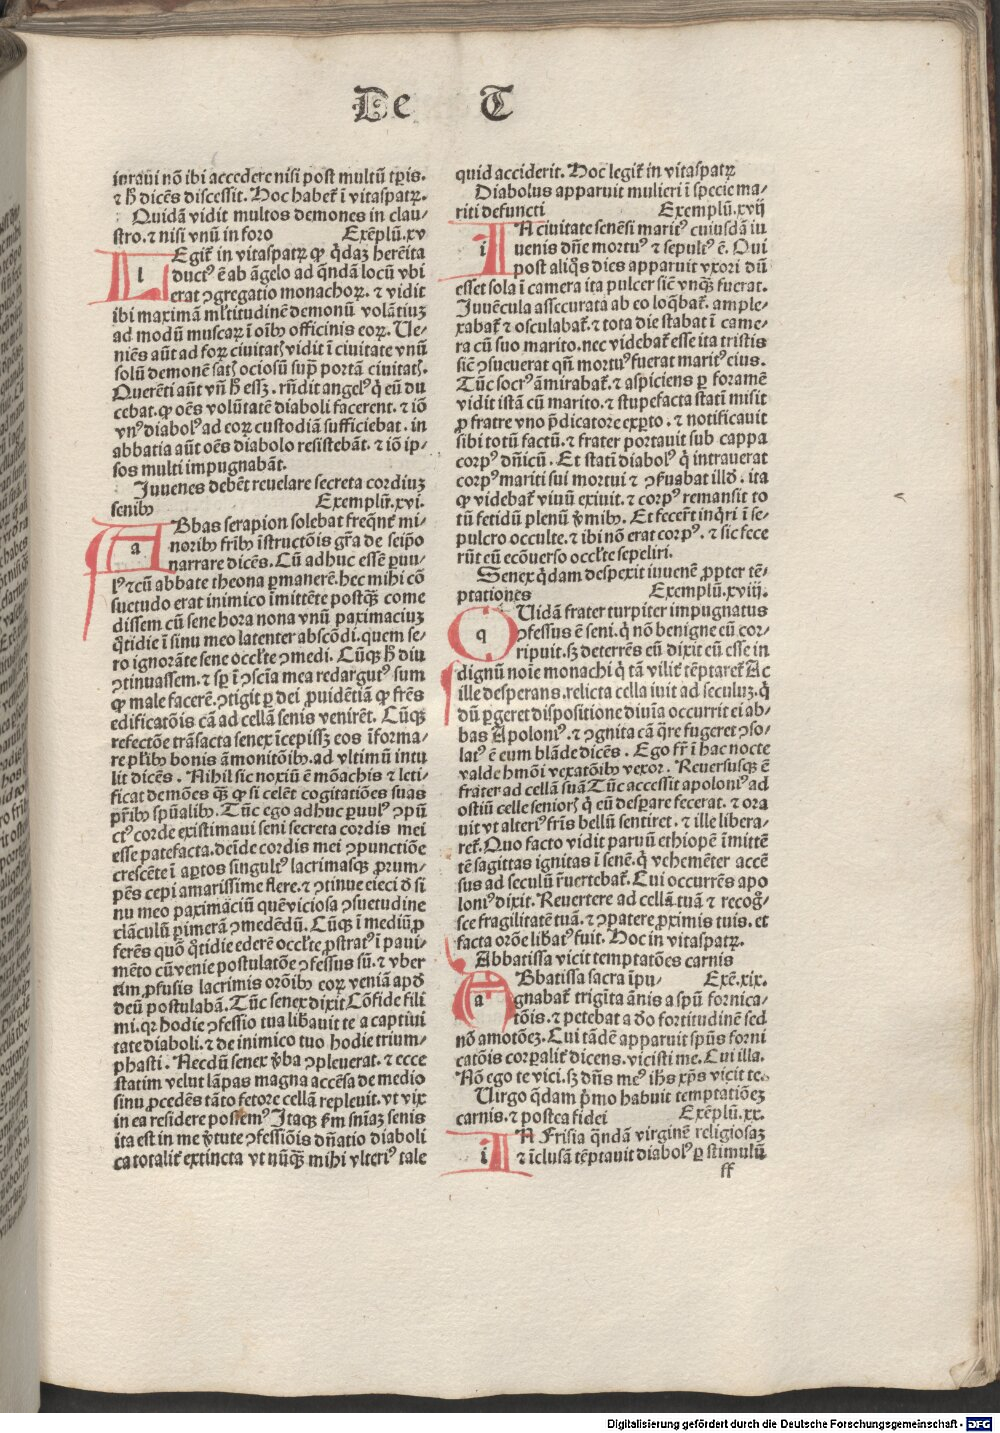 De T
intraui nõ ibi accedere nisi post multũ tp̃is.
⁊ h̃ dicẽs discessit. Hoc habet̃ ĩ vitaspatꝝ.
Quidã vidit multos demones in clau/
stro. ⁊ nisi vnũ in foro Exẽplũ.xv
LEgit̃ in vitaspatꝝ ꝙ q̃daꝫ herẽita
ductꝰ ẽ ab ãgelo ad q̃ndã locũ vbi
erat ꝯgregatio monachoꝝ. ⁊ vidit
ibi maximã ml̃titudinẽ demonũ volãtiuꝫ
ad modũ muscaꝝ ĩ oĩbꝰ officinis eoꝝ. Ue/
niẽs aũt ad foꝝ ciuitat̃ vidit ĩ ciuitate vnũ
solũ demonẽ sat̃ ociosũ sup̃ portã ciuitat̃.
Querẽti aũt vñ h̃ esꝫ. rñdit angelꝰ q̃ eũ du
cebat. ꝙ oẽs volũtatẽ diaboli facerent. ⁊ iõ
vnꝰ diabolꝰ ad eoꝝ custodiã sufficiebat. in
abbatia aũt oẽs diabolo resistebãt. ⁊ iõ ip/
sos multi impugnabãt.
Juuenes debẽt reuelare secreta cordiuꝫ
senibꝰ Exemplũ.xvi.
ABbas serapion solebat freq̃nt̃ mi/
noribꝰ fr̃ibꝰ ĩstructõis gr̃a de seip̃o
narrare dicẽs. Cũ adhuc essẽ ꝑuu/
lꝰ ⁊ cũ abbate theona ꝑmanerẽ. hec mihi cõ
suctudo erat inimico ĩmittẽte postq̃ꝫ come
dissem cũ sene hora nona vnũ paximaciuꝫ
q̃tidie ĩ sinu meo latenter abscõdi. quem se/
ro ignorãte sene occl̃te ꝯmedi. Cũqꝫ h̃ diu
ꝯtinuassem. ⁊ sp̃ ĩ ꝯscĩa mea redargutꝰ sum
ꝙ male facerẽ. ꝯtigit ꝑ dei ꝓuidẽtiã ꝙ fr̃es
edificatõis cã ad cellã senis venirẽt. Cũqꝫ
refectõe trãsacta senex ĩcepisꝫ eos ĩforma/
re pl̃ibꝰ bonis ãmonitõibꝰ. ad vltimũ intu
lit dicẽs. Nihil sic noxiũ ẽ mõachis ⁊ leti/
ficat demões q̃ꝫ ꝙ si celẽt cogitatiões suas
pr̃ibꝰ sp̃ualibꝰ. Tũc ego adhuc ꝑuulꝰ ꝯpũ
ctꝰ corde existimaui seni secreta cordis mei
esse patefacta. deĩde cordis mei ꝯpunctiõe
crescẽte ĩ aꝑtos singultꝰ lacrimasqꝫ ꝓrum/
pẽs cepi amarissime flere. ⁊ ꝯtinue eieci õ si
nu meo paximãciũ quẽ viciosa ꝯsuetudine
clãculũ ꝑimerã ꝯmedẽdũ. Cũqꝫ ĩ mediũ ꝓ
ferẽs quõ q̃tidie ederẽ occl̃te ꝓstratꝰ ĩ paui/
mẽto cũ venie postulatõe ꝯfessus sũ. ⁊ vber
tim ꝓfusis lacrimis orõibꝰ eoꝝ veniã apd̃
deũ postulabã. Tũc senex dixit Cõfide fili
mi. qꝛ hodie ꝯfessio tua lib̃auit te a captiui
tate diaboli. ⁊ de inimico tuo hodie trium/
phasti. Necdũ senex ṽba ꝯpleuerat. ⁊ ecce
statim velut lãpas magna accẽsa de medio
sinu ꝓcedẽs tãto fetore cellã repleuit. vt vix
in ea residere possemꝰ Itaqꝫ ẜm sniãꝫ senis
ita est in me ṽtute ꝯfessiõis dñatio diaboli
ca totalit̃ extincta vt nũqꝫ mihi vlteriꝰ tale
quid acciderit. Hoc legit̃ in vitaspatꝝ
Diabolus apparuit mulieri ĩ specie ma/
riti defuncti Exemplũ.xvij
IN ciuitate senẽsi maritꝰ cuiusdã iu
uenis dñe mortuꝰ ⁊ sepulꝰ ẽ. Qui
post aliq̃s dies apparuit vxori dũ
esset sola ĩ camera ita pulcer sic̃ vnqꝫ fuerat.
Juuẽcula assecurata ab eo loq̃bat̃. ample/
xabat̃ ⁊ osculabat̃. ⁊ tota die stabat ĩ came/
ra cũ suo marito. nec videbat̃ esse ita tristis
siẽ ꝯsueuerat qñ mortuꝰ fuerat maritꝰ eius.
Tũc socrꝰ ãmirabat̃. ⁊ aspiciens ꝑ foramẽ
vidit istã cũ marito. ⁊ stupefacta statĩ misit
ꝓ fratre vno p̃dicatore exꝑto. ⁊ notificauit
sibi totũ factũ. ⁊ frater portauit sub cappa
corpꝰ dñicũ. Et statĩ diabolꝰ q̃ intrauerat
corpꝰ mariti sui mortui ⁊ ꝯſuabat illd̃. ita
ꝙ videbat̃ viuũ exiuit. ⁊ corpꝰ remansit to
tũ fetidũ plenũ ṽmibꝰ. Et fecerũt inq̃ri ĩ se/
pulcro occulte. ⁊ ibi nõ erat corpꝰ. ⁊ sic fece
rũt eũ ecõuerso occl̃te sepeliri.
Senex q̃dam despexit iuuenẽ ꝓpter tẽ/
ptationes Exemplũ.xviij.
QUidã frater turpiter impugnatus
ꝯfessus ẽ seni. q̃ nõ benigne eũ cor/
ripuit. sꝫ deterrẽs eũ dixit eũ esse in
dignũ noĩe monachi q̃ tã vilit̃ tẽptaret̃ Ac
ille desperans. relicta cella iuit ad seculuꝫ. q̃
dũ ꝑgeret dispositione diuĩa occurrit ei ab/
bas Apoloniꝰ. ⁊ ꝯgnita cã q̃re fugeret ꝯso/
latꝰ ẽ eum blãde dicẽs. Ego fr̃ ĩ hac nocte
valde hmõi vexatõibꝰ vexor. Reuersusqꝫ ẽ
frater ad cellã suã Tũc accessit apoloniꝰ ad
ostiũ celle senior̃ q̃ eũ desꝑare fecerat. ⁊ ora
uit vt alteriꝰ fr̃is bellũ sentiret. ⁊ ille libera/
ret̃. Quo facto vidit paruũ ethiopẽ ĩmittẽ
tẽ sagittas ignitas ĩ senẽ. q̃ vehemẽter accẽ
sus ad seculũ r̃uertebat̃. Cui occurrẽs apo
loniꝰ dixit. Reuertere ad cellã tuã ⁊ recog̃/
sce fragilitatẽ tuã. ⁊ ꝯpatere ꝓximis tuis. et
facta orõe lib̃atꝰ fuit. Hoc in vitaspatꝝ.
Abbatissa vicit temptatões carnis
ABbatissa sacra ĩpu/ Exẽ.xix.
gnabat̃ trigĩta ãnis a spũ fornica/
tõis. ⁊ petebat a deo fortitudinẽ sed
nõ amotõeꝫ. Cui tãdẽ apparuit sp̃us forni
catõis corꝑalit̃ dicens. vicisti me. Cui illa.
Nõ ego te vici. sꝫ dñs meꝰ ihs xp̃s vicit te.
Uirgo q̃dam p̃mo habuit temptatiõeꝫ
carnis. ⁊ postea fidei Exẽplũ.xx.
IN Frisia q̃ndã virginẽ religiosaꝫ
⁊ ĩclusã tẽptauit diabolꝰ ꝑ stimulũ
ff
Digitalisierung gefördert durch die Deutsche Forschungsgemeinschaft - DFG